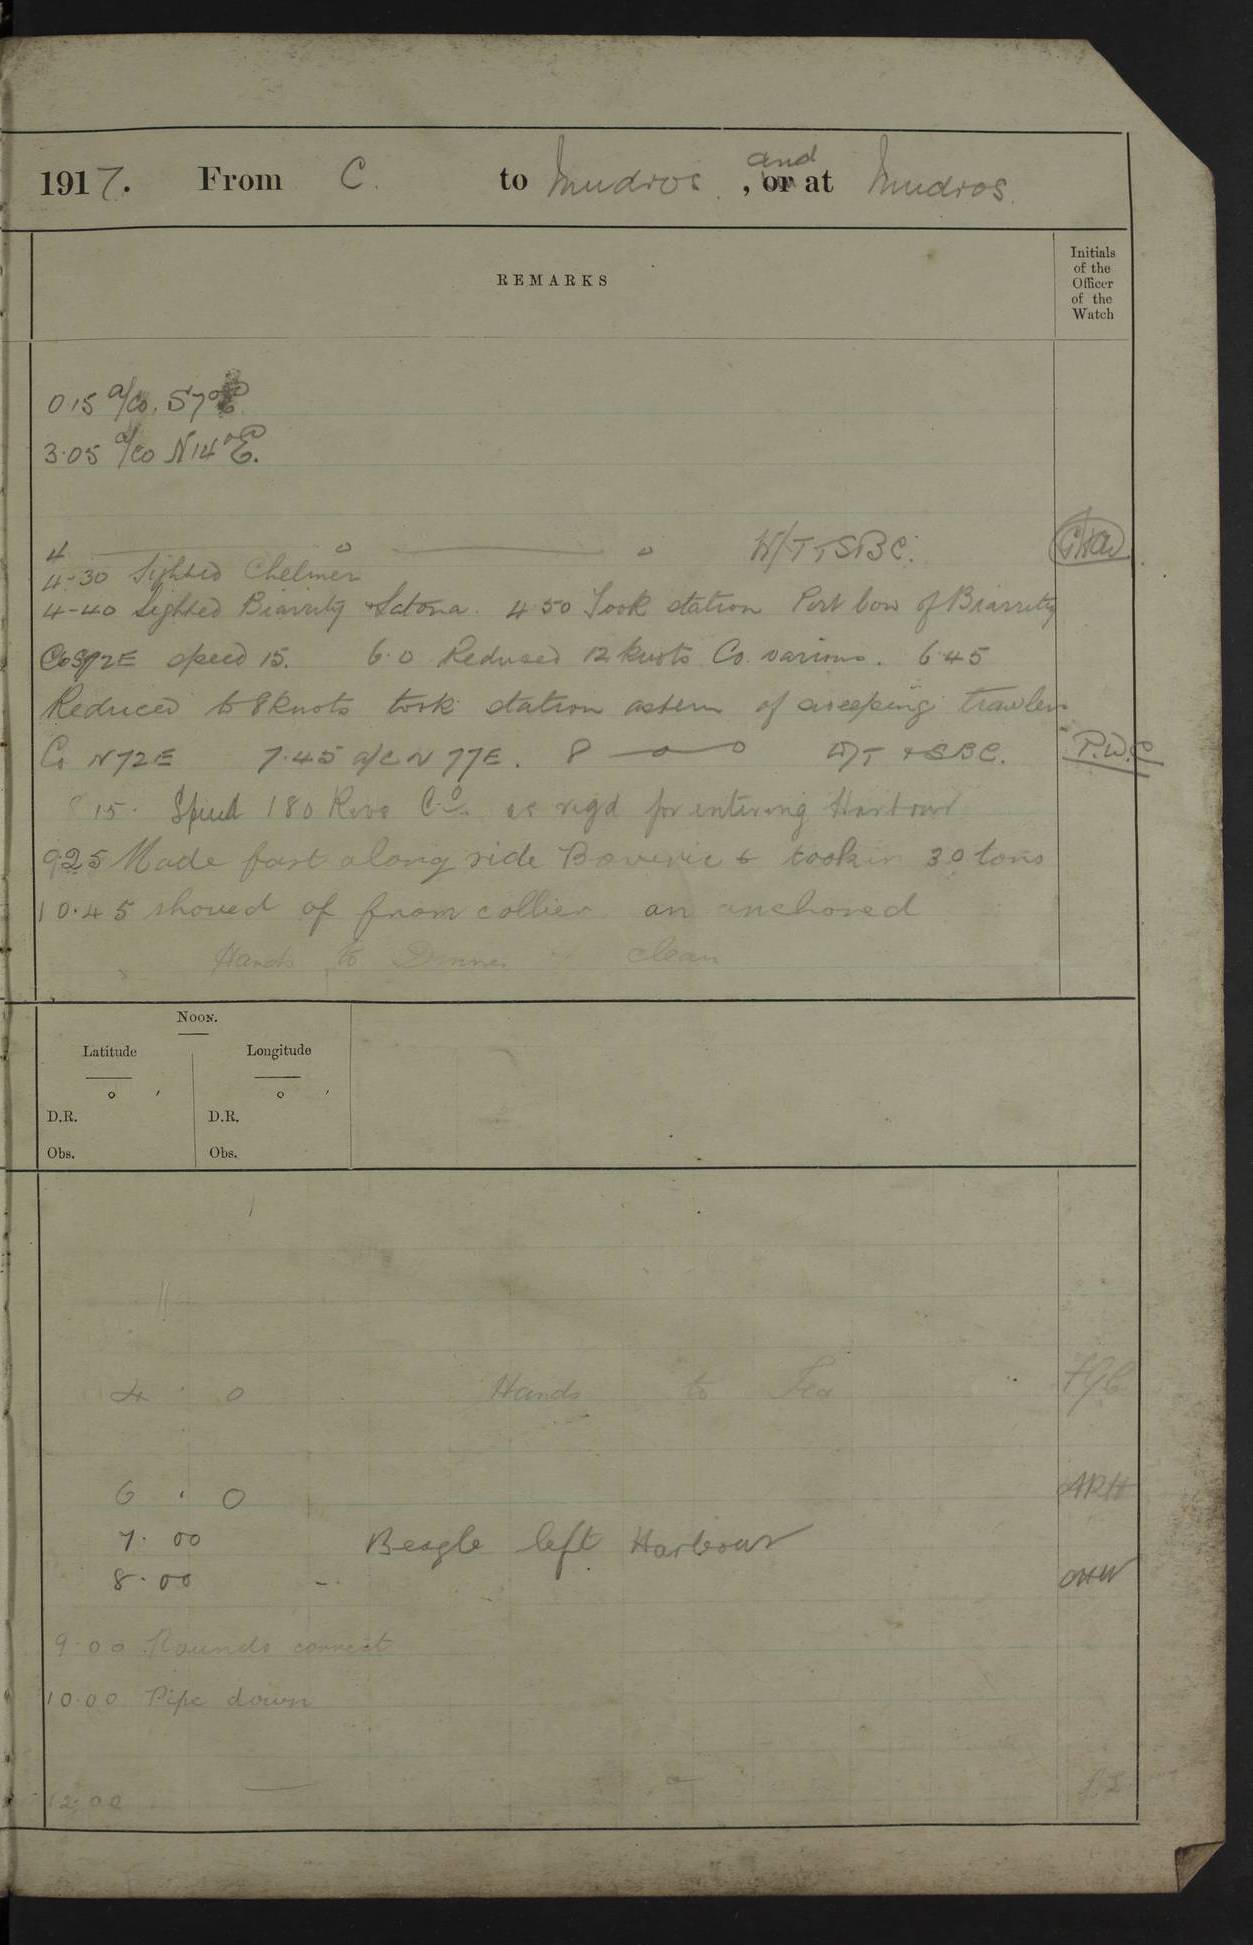 1917. From C. to Mudros, or and at Mudros.
REMARKS
Initials of the Officer of the Watch
0 15 a/co. S 7° E
3.05 a/co N 14° E.
4 — o — o W/T + SBC.
4-30 Sighted Chelmer
4-40 Sighted Biarritz + Latona. 4 50 Took station Port bow of Biarritz
Co S72E speed 15. 6.0 Reduced 12 knots Co. various. 6.45
Reduced to 8 knots took station astern of sweeping trawlers
Co N72E 7.45 a/c N 77E. 8 — o — o W/T + SBC. P.W.C
8 15. Speed 180 Revs Co. as reqd for entering Harbour
9.25 Made fast along side Boveric & took in 30 tons
10.45 shoved of from collier an anchored
Hands to Dinner clean
NOON.
Latitude Longitude
° ' ° '
D.R. D.R.
Obs. Obs.
4 . 0 Hands to Tea
6 . 0 ARH
7. 00 Beagle left Harbour
8. 00 - CHW
9.00 Rounds correct
10.00 Pipe down
12.00